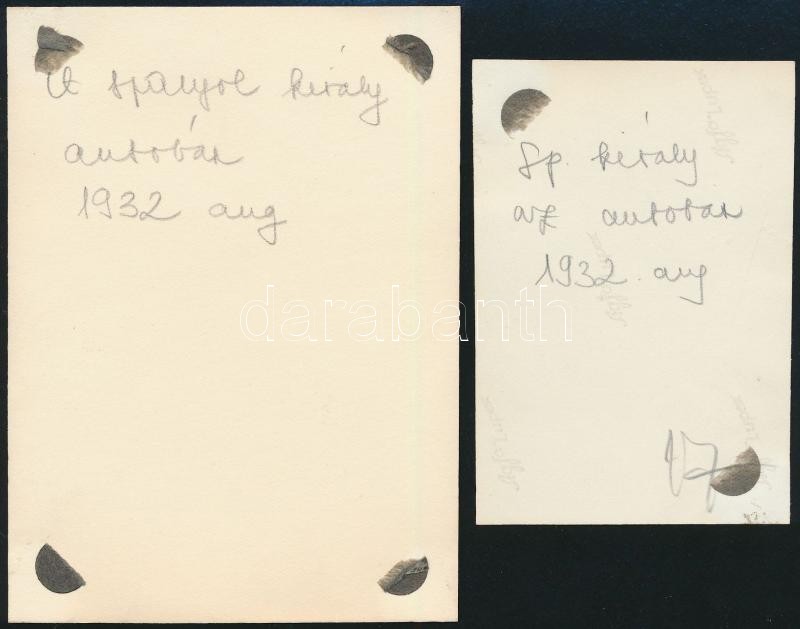 A spanyol király
autobán
1932 aug
Sp. király
az autoban
1932. aug
17
darabanth